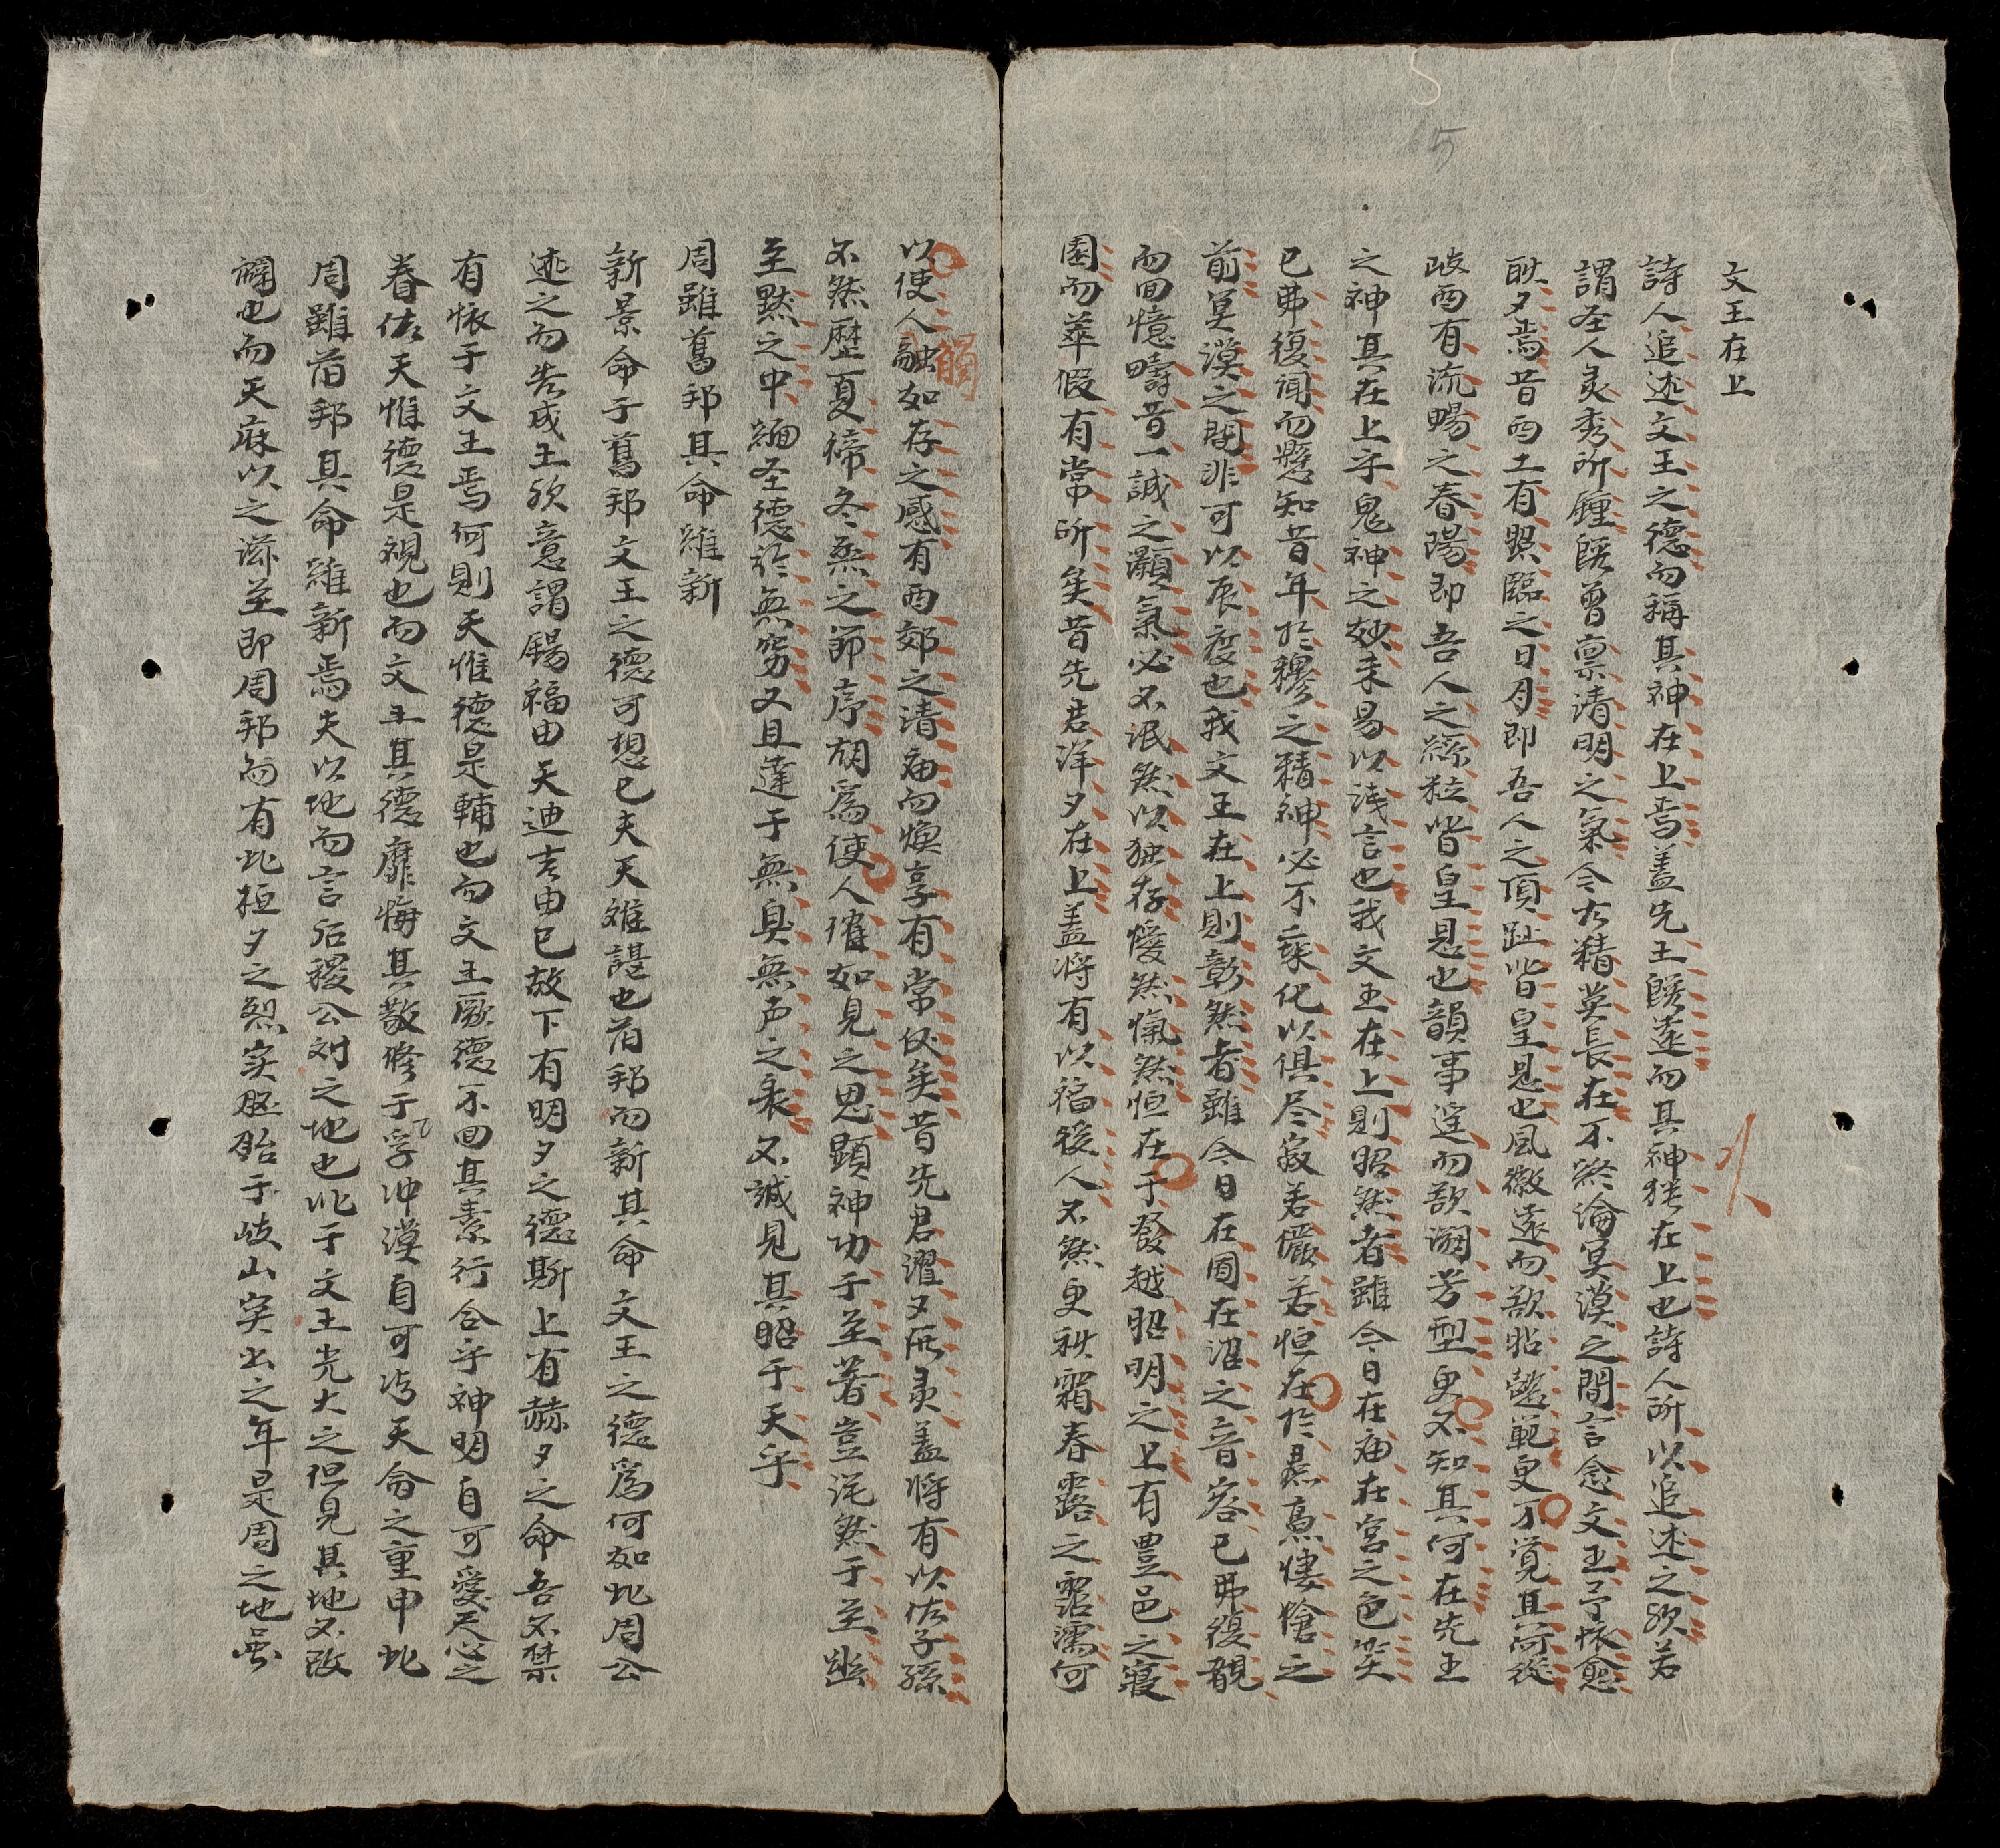 文王在上
詩人追述文王之德而稱其神在上焉盖先王既遠而其神猶在上也詩人所以追述之欤若
謂圣人灵秀所鍾既曾禀清明之氣今古精英長在不終淪冥漠之間言念文王予怀愈
耿夕焉昔西土有照臨之日月即吾人之頂趾皆皇恩也風徽遠而欲昭懿範更不覚其何從
岐西有流暢之春陽即吾人之絲粒皆皇恩也韻事遥而欲溯芳型更不知其何在先王
之神其在上乎鬼神之妙未易以浅言也我文王在上則昭然者雖今日在庙在宮之色笑
已弗復闻而懸知昔年於穆之精神必不乘化以俱尽寂若儼若恒在於焄蒿悽愴之
前冥漠之間非可以辰度也我文王在上則彰然者雖今日在囿在沼之音容已弗復覩
而回憶疇昔一誠之灝氣必不泯然以独存僾然愾然恒在于發越昭明之上有豊邑之寢
園而萃假有常所矣昔先君洋夕在上盖将有以福後人不然更秩霜春露之霑濡何
以使人觸如存之感有西郊之清庙而煥享有常仪矣昔先君濯夕厥灵盖将有以佑子孫
不然歷夏禘冬烝之節序胡爲使人愾如見之思顕神功于至著豈茫然于至幽
至黙之中緬圣德於無窮又且達于無臭無声之表不誠見其昭于天乎
周雖舊邦其命維新
新景命于舊邦文王之德可想已夫天难諶也旧邦而新其命文王之德爲何如此周公
述之而告成王欤意謂錫福由天迪吉由已故下有明夕之德斯上有赫夕之命吾不禁
有怀于文王焉何則天惟德是輔也而文王厥德不回其素行合乎神明自可愛天心之
眷佑天惟德是視也而文王其德靡悔其敬修于孚冲漠自可凭天命之重申此
周雖旧邦其命維新焉夫以地而言后稷公刘之地也此于文王光大之但見其地不改
闢也而天庥以之滋至即周邦而有此桓夕之烈实胚胎于岐山实出之年是周之地虽